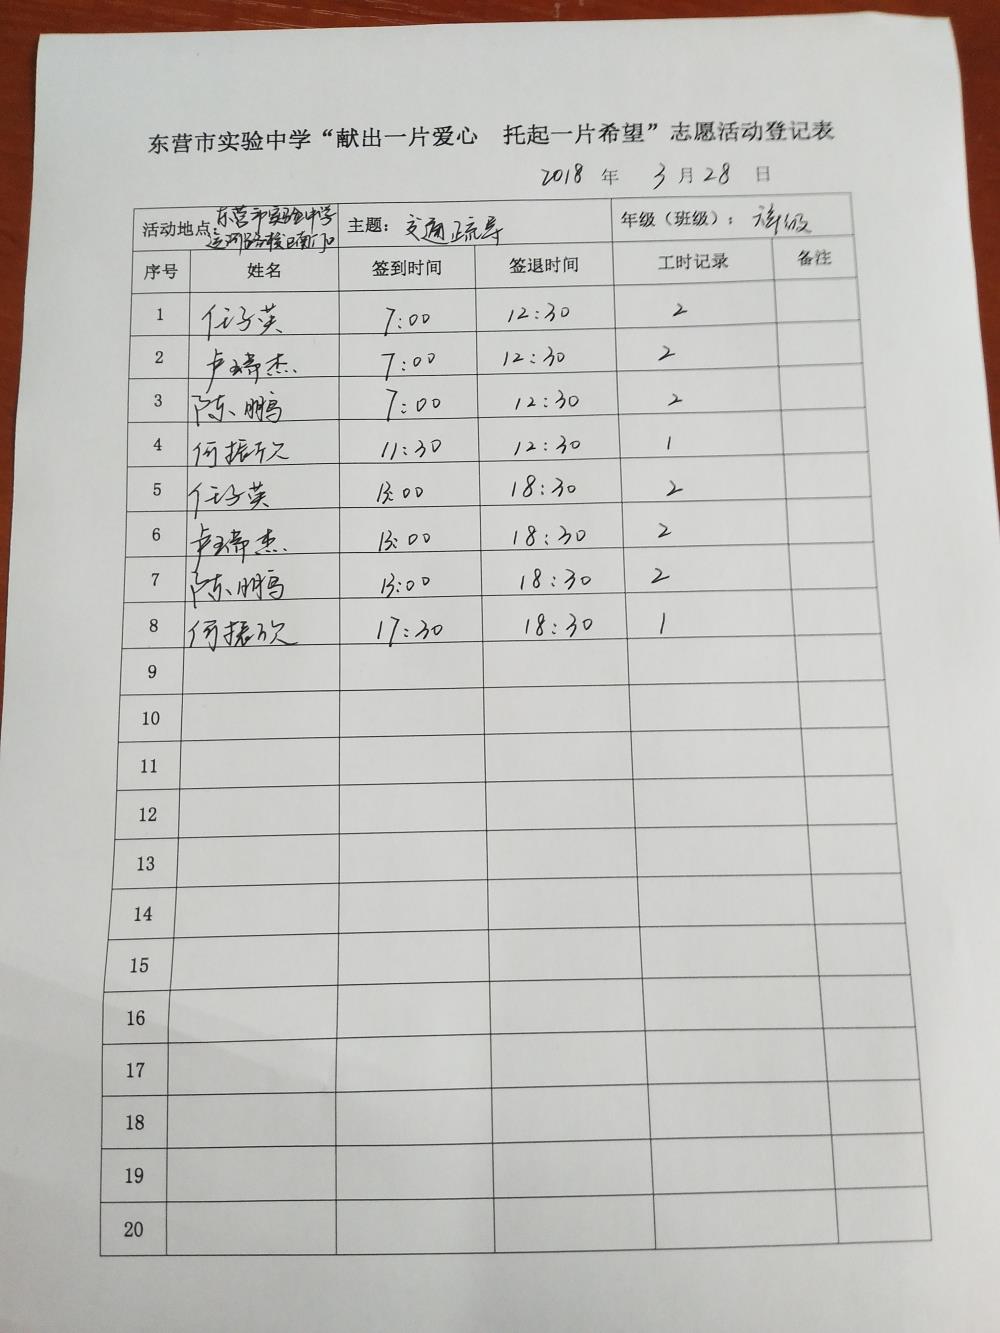 东营市实验中学“献出一片爱心 托起一片希望”志愿活动登记表
2018 年 3 月 28 日
活动地点：东营市实验中学运河路校区南门口 主题：交通疏导 年级（班级）：级
序号 姓名 签到时间 签退时间 工时记录 备注
1 任子英 7:00 12:30 2
2 卢瑞杰 7:00 12:30 2
3 陈鹏 7:00 12:30 2
4 何振欣 11:30 12:30 1
5 任子英 13:00 18:30 2
6 卢瑞杰 13:00 18:30 2
7 陈鹏 13:00 18:30 2
8 何振欣 17:30 18:30 1
9
10
11
12
13
14
15
16
17
18
19
20